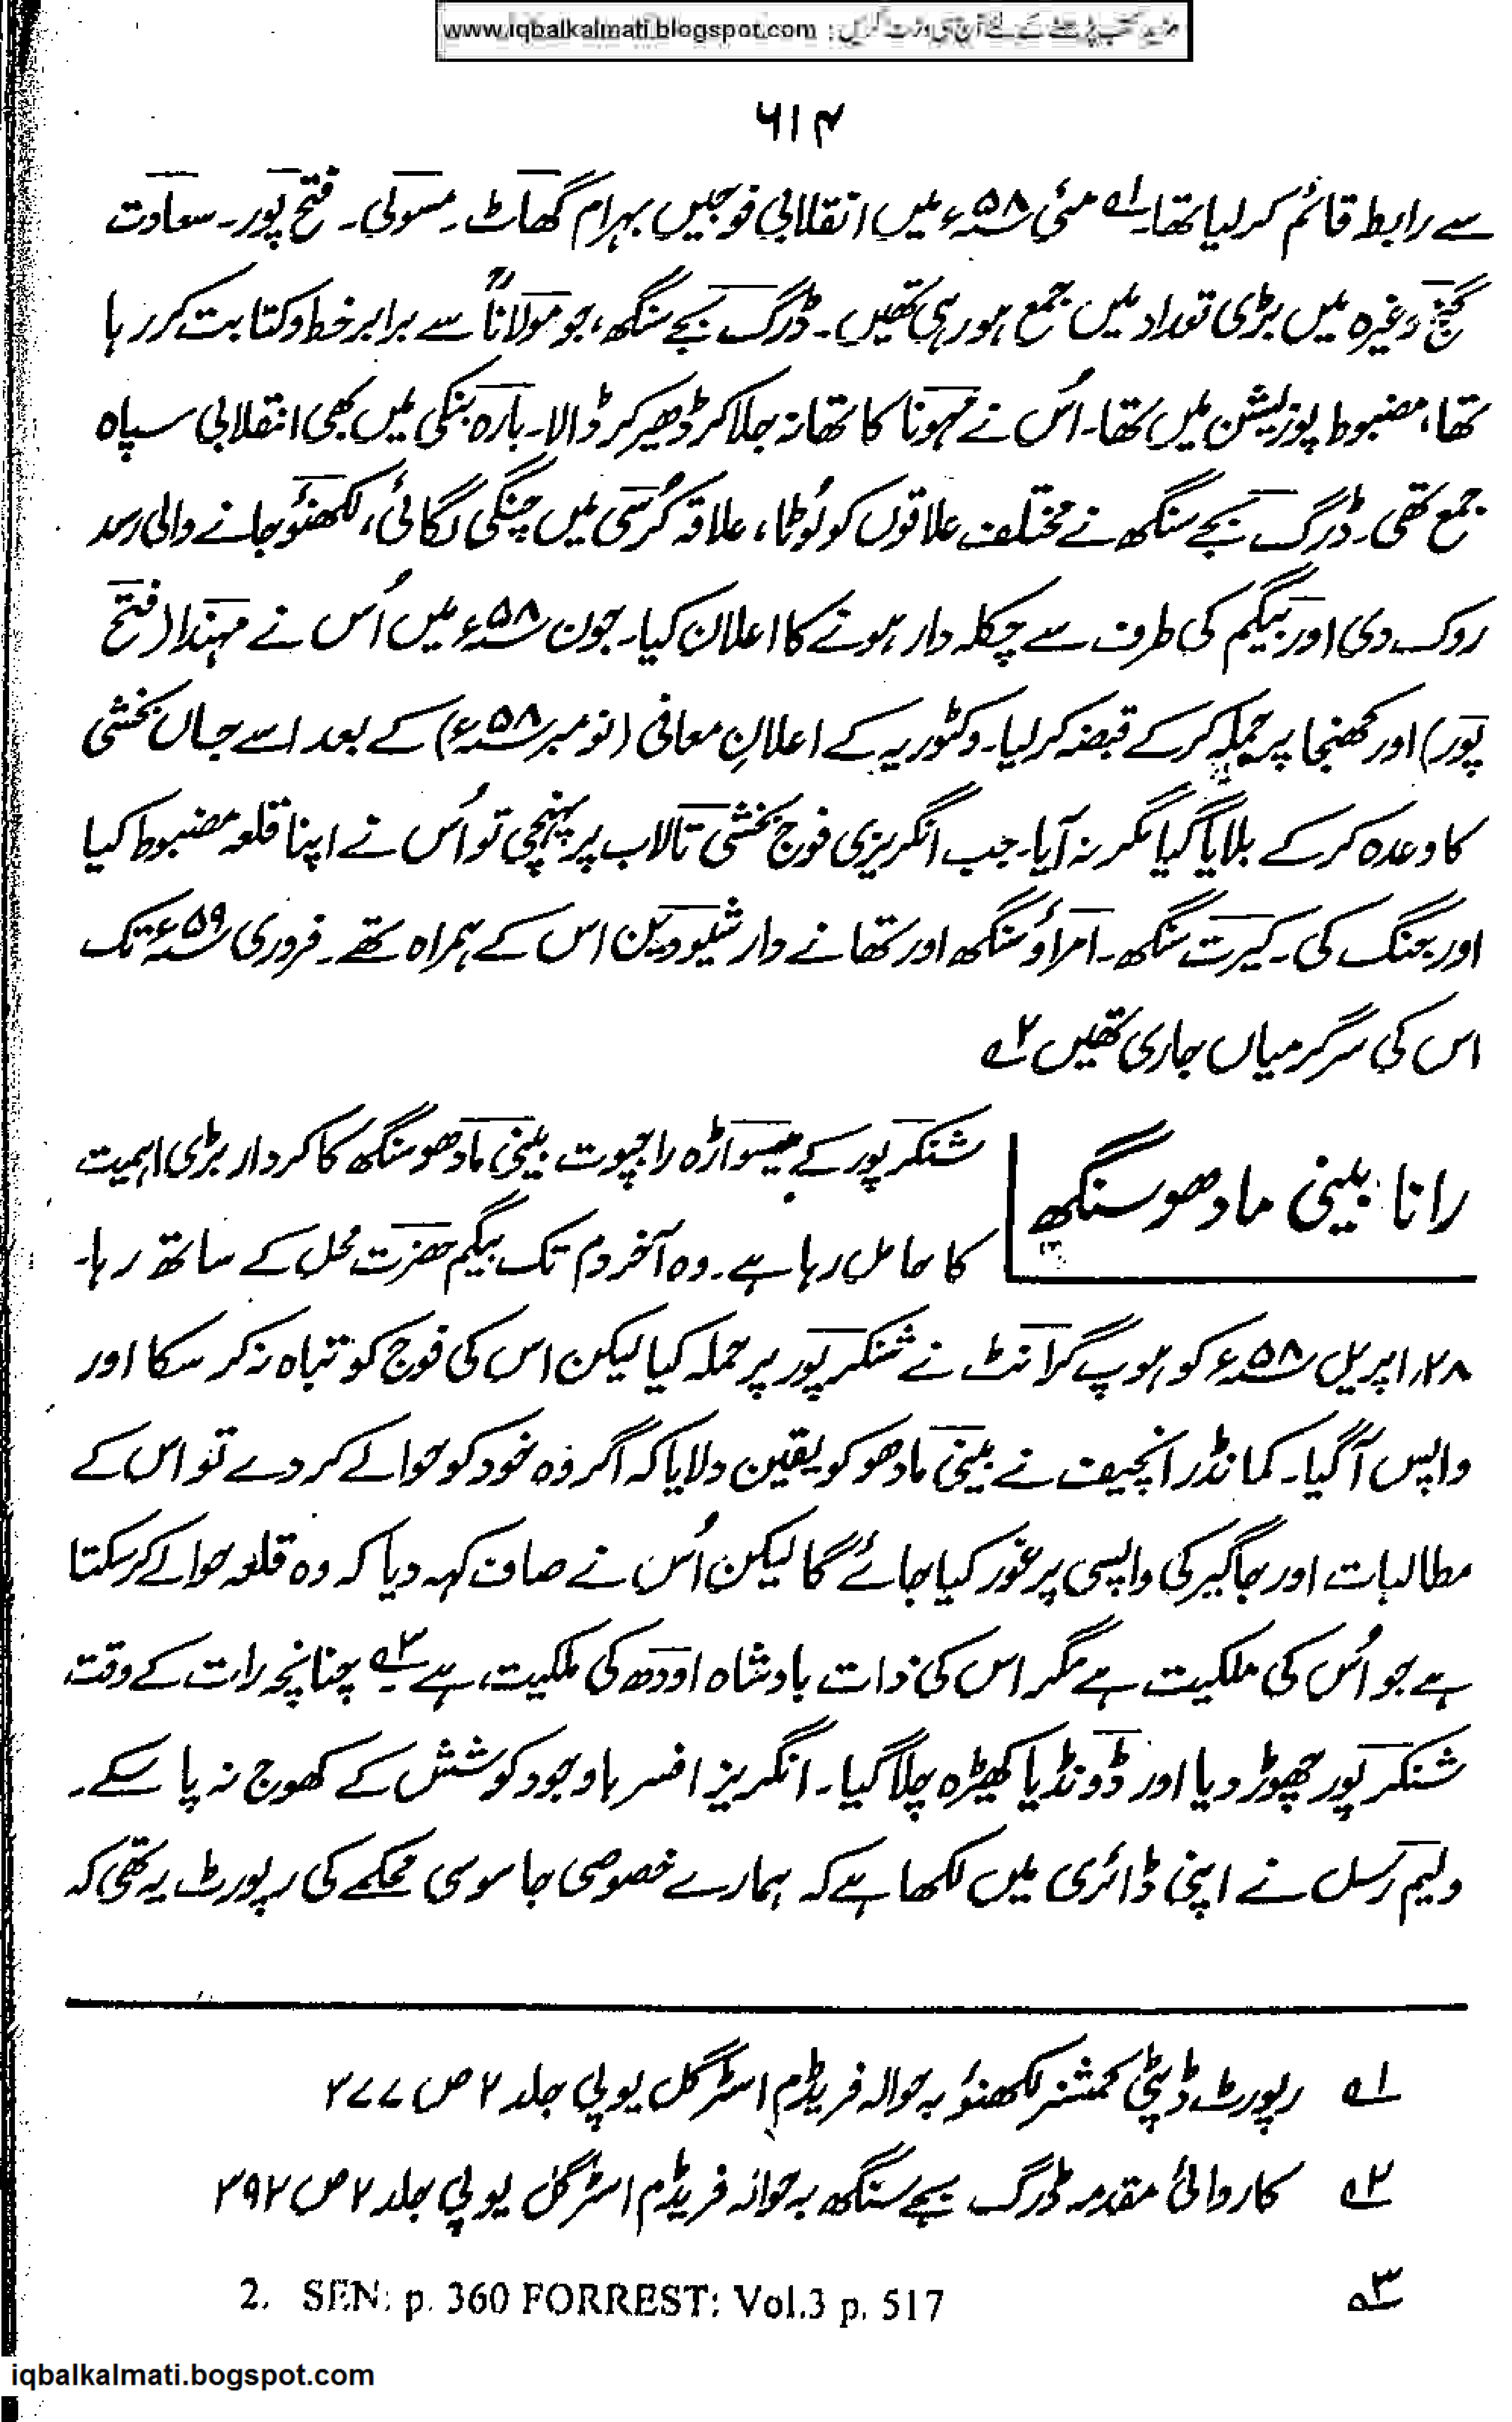 مزید کتب پڑھنے کے لئے آج ہی وزٹ کریں : www.iqbalkalmati.blogspot.com
۶۱۴
سے رابطہ قائم کر لیا تھا۔۱؎ مئی ۵۸ء میں انقلابی فوجیں بہرام گھاٹ۔ مسولی۔ فتح پور۔ سعادت
گنج وغیرہ میں بڑی تعداد میں جمع ہو رہی تھیں۔ ڈرگ بجے سنگھ، جو مولاناؒ سے برابر خط و کتابت کر رہا
تھا، مضبوط پوزیشن میں تھا۔ اُس نے مہونا کا تھانہ جلا کر ڈھیر کر ڈالا۔ بارہ بنکی میں بھی انقلابی سپاہ
جمع تھی۔ ڈرگ بجے سنگھ نے مختلف علاقوں کو لُوٹا، علاقہ کُرسی میں چنگی لگائی، لکھنؤ جانے والی رسد
روک دی اور بیگم کی طرف سے چکلہ دار ہونے کا اعلان کیا۔ جون ۵۸ء میں اُس نے مہندا (فتح
پور) اور کھنجا پر حملہ کر کے قبضہ کر لیا۔ وکٹوریہ کے اعلانِ معافی (نومبر ۵۸ء) کے بعد اسے جاں بخشی
کا وعدہ کر کے بلایا گیا مگر نہ آیا۔ جب انگریزی فوج بخشی تالاب پر پہنچی تو اُس نے اپنا قلعہ مضبوط کیا
اور جنگ کی۔ کیرت سنگھ۔ امراؤ سنگھ اور تھانے دار شیودین اس کے ہمراہ تھے۔ فروری ۵۹ء تک
اس کی سرگرمیاں جاری تھیں ۲؎
رانا بینی مادھو سنگھ
شنکر پور کے بیسواڑہ راجپوت بینی مادھو سنگھ کا کردار بڑی اہمیت
کا حامل رہا ہے۔ وہ آخر دم تک بیگم حضرت محل کے ساتھ رہا۔
۲۸؍ اپریل ۵۸ء کو ہوپ گرانٹ نے شنکر پور پر حملہ کیا لیکن اس کی فوج کو تباہ نہ کر سکا اور
واپس آ گیا۔ کمانڈر انچیف نے بینی مادھو کو یقین دلایا کہ اگر وہ خود کو حوالے کر دے تو اس کے
مطالبات اور جاگیر کی واپسی پر غور کیا جائے گا لیکن اُس نے صاف کہہ دیا کہ وہ قلعہ حوالے کر سکتا
ہے جو اُس کی ملکیت ہے مگر اس کی ذات بادشاہ اودھ کی ملکیت ہے ۳؎ چنانچہ رات کے وقت
شنکر پور چھوڑ دیا اور ڈونڈیا کھیڑہ چلا گیا۔ انگریز افسر باوجود کوشش کے کھوج نہ پا سکے۔
ولیم رسل نے اپنی ڈائری میں لکھا ہے کہ ہمارے خصوصی جاسوسی محکمے کی رپورٹ یہ تھی کہ
۱؎ رپورٹ ڈپٹی کمشنر لکھنؤ بہ حوالہ فریڈم اسٹرگل یوپی جلد ۲ ص ۳۷۷
۲؎ کاروائی مقدمہ ڈرگ بجے سنگھ بہ حوالہ فریڈم اسٹرگل یوپی جلد ۲ ص ۳۹۲
۳؎ 2. SEN: p. 360 FORREST: Vol.3 p. 517
iqbalkalmati.bogspot.com